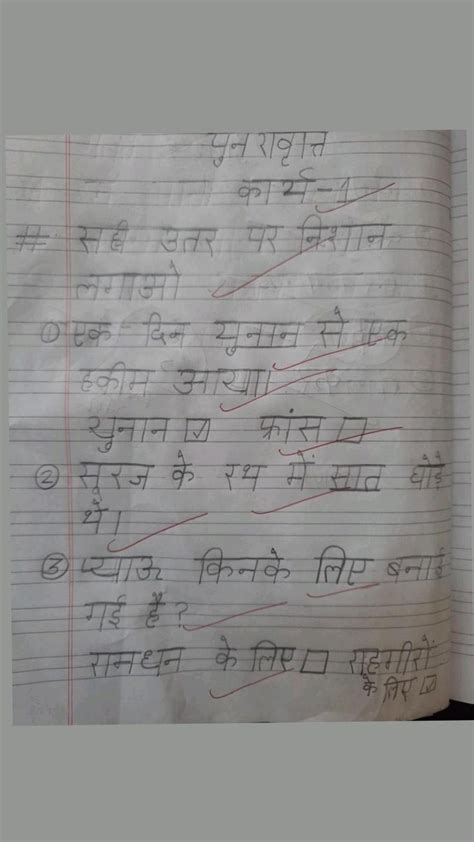 पुनरावृत्ति
कार्य-1
# सही उतर पर निशान
लगाओ
① एक दिन युनान से एक
हकीम आया।
युनान ☑ फ्रांस ☐
② सूरज के रथ में सात घोड़े
थे।
③ प्याऊ किनके लिए बनाई
गई है?
रामधन के लिए ☐ राहगीरों
के लिए ☑